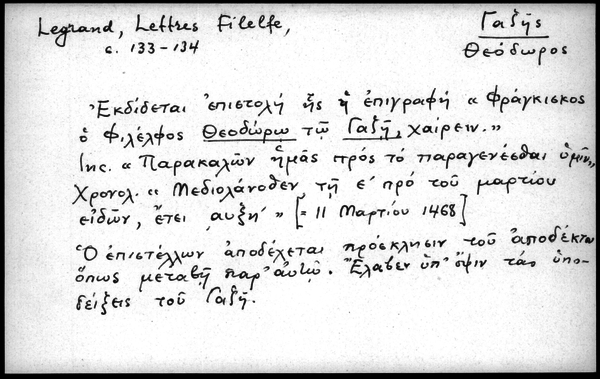 Legrand, Lettres Filelfe,
σ. 133-134
Γαζῆς
Θεόδωρος
Ἐκδίδεται ἐπιστολή ἧς ἡ ἐπιγραφή «Φράγκισκος
ὁ Φιλέλφος Θεοδώρῳ τῷ Γαζῇ, χαίρειν.»
Inc. «Παρακαλῶν ἡμᾶς πρός τό παραγενέσθαι ὑμῖν»,
Χρονολ. «Μεδιολάνοθεν, τῇ ε΄ πρό τοῦ μαρτίου
εἰδῶν, ἔτει ͵αυξη΄» [= 11 Μαρτίου 1468]
Ὁ ἐπιστέλλων ἀποδέχεται πρόσκλησιν τοῦ ἀποδέκτου
ὅπως μεταβῇ παρ' αὐτῷ. Ἔλαβεν ὑπ' ὄψιν τάς ὑπο-
δείξεις τοῦ Γαζῆ.